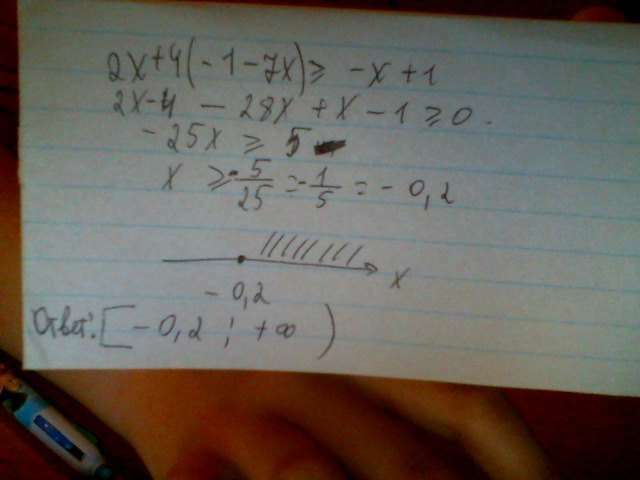 2x+4(-1-7x)≥ -x+1
2x-4 - 28x + x - 1 ≥ 0.
-25x ≥ 5
x ≥ -5/25 = -1/5 = - 0,2
x
- 0,2
Ответ: [-0,2 ; +∞)